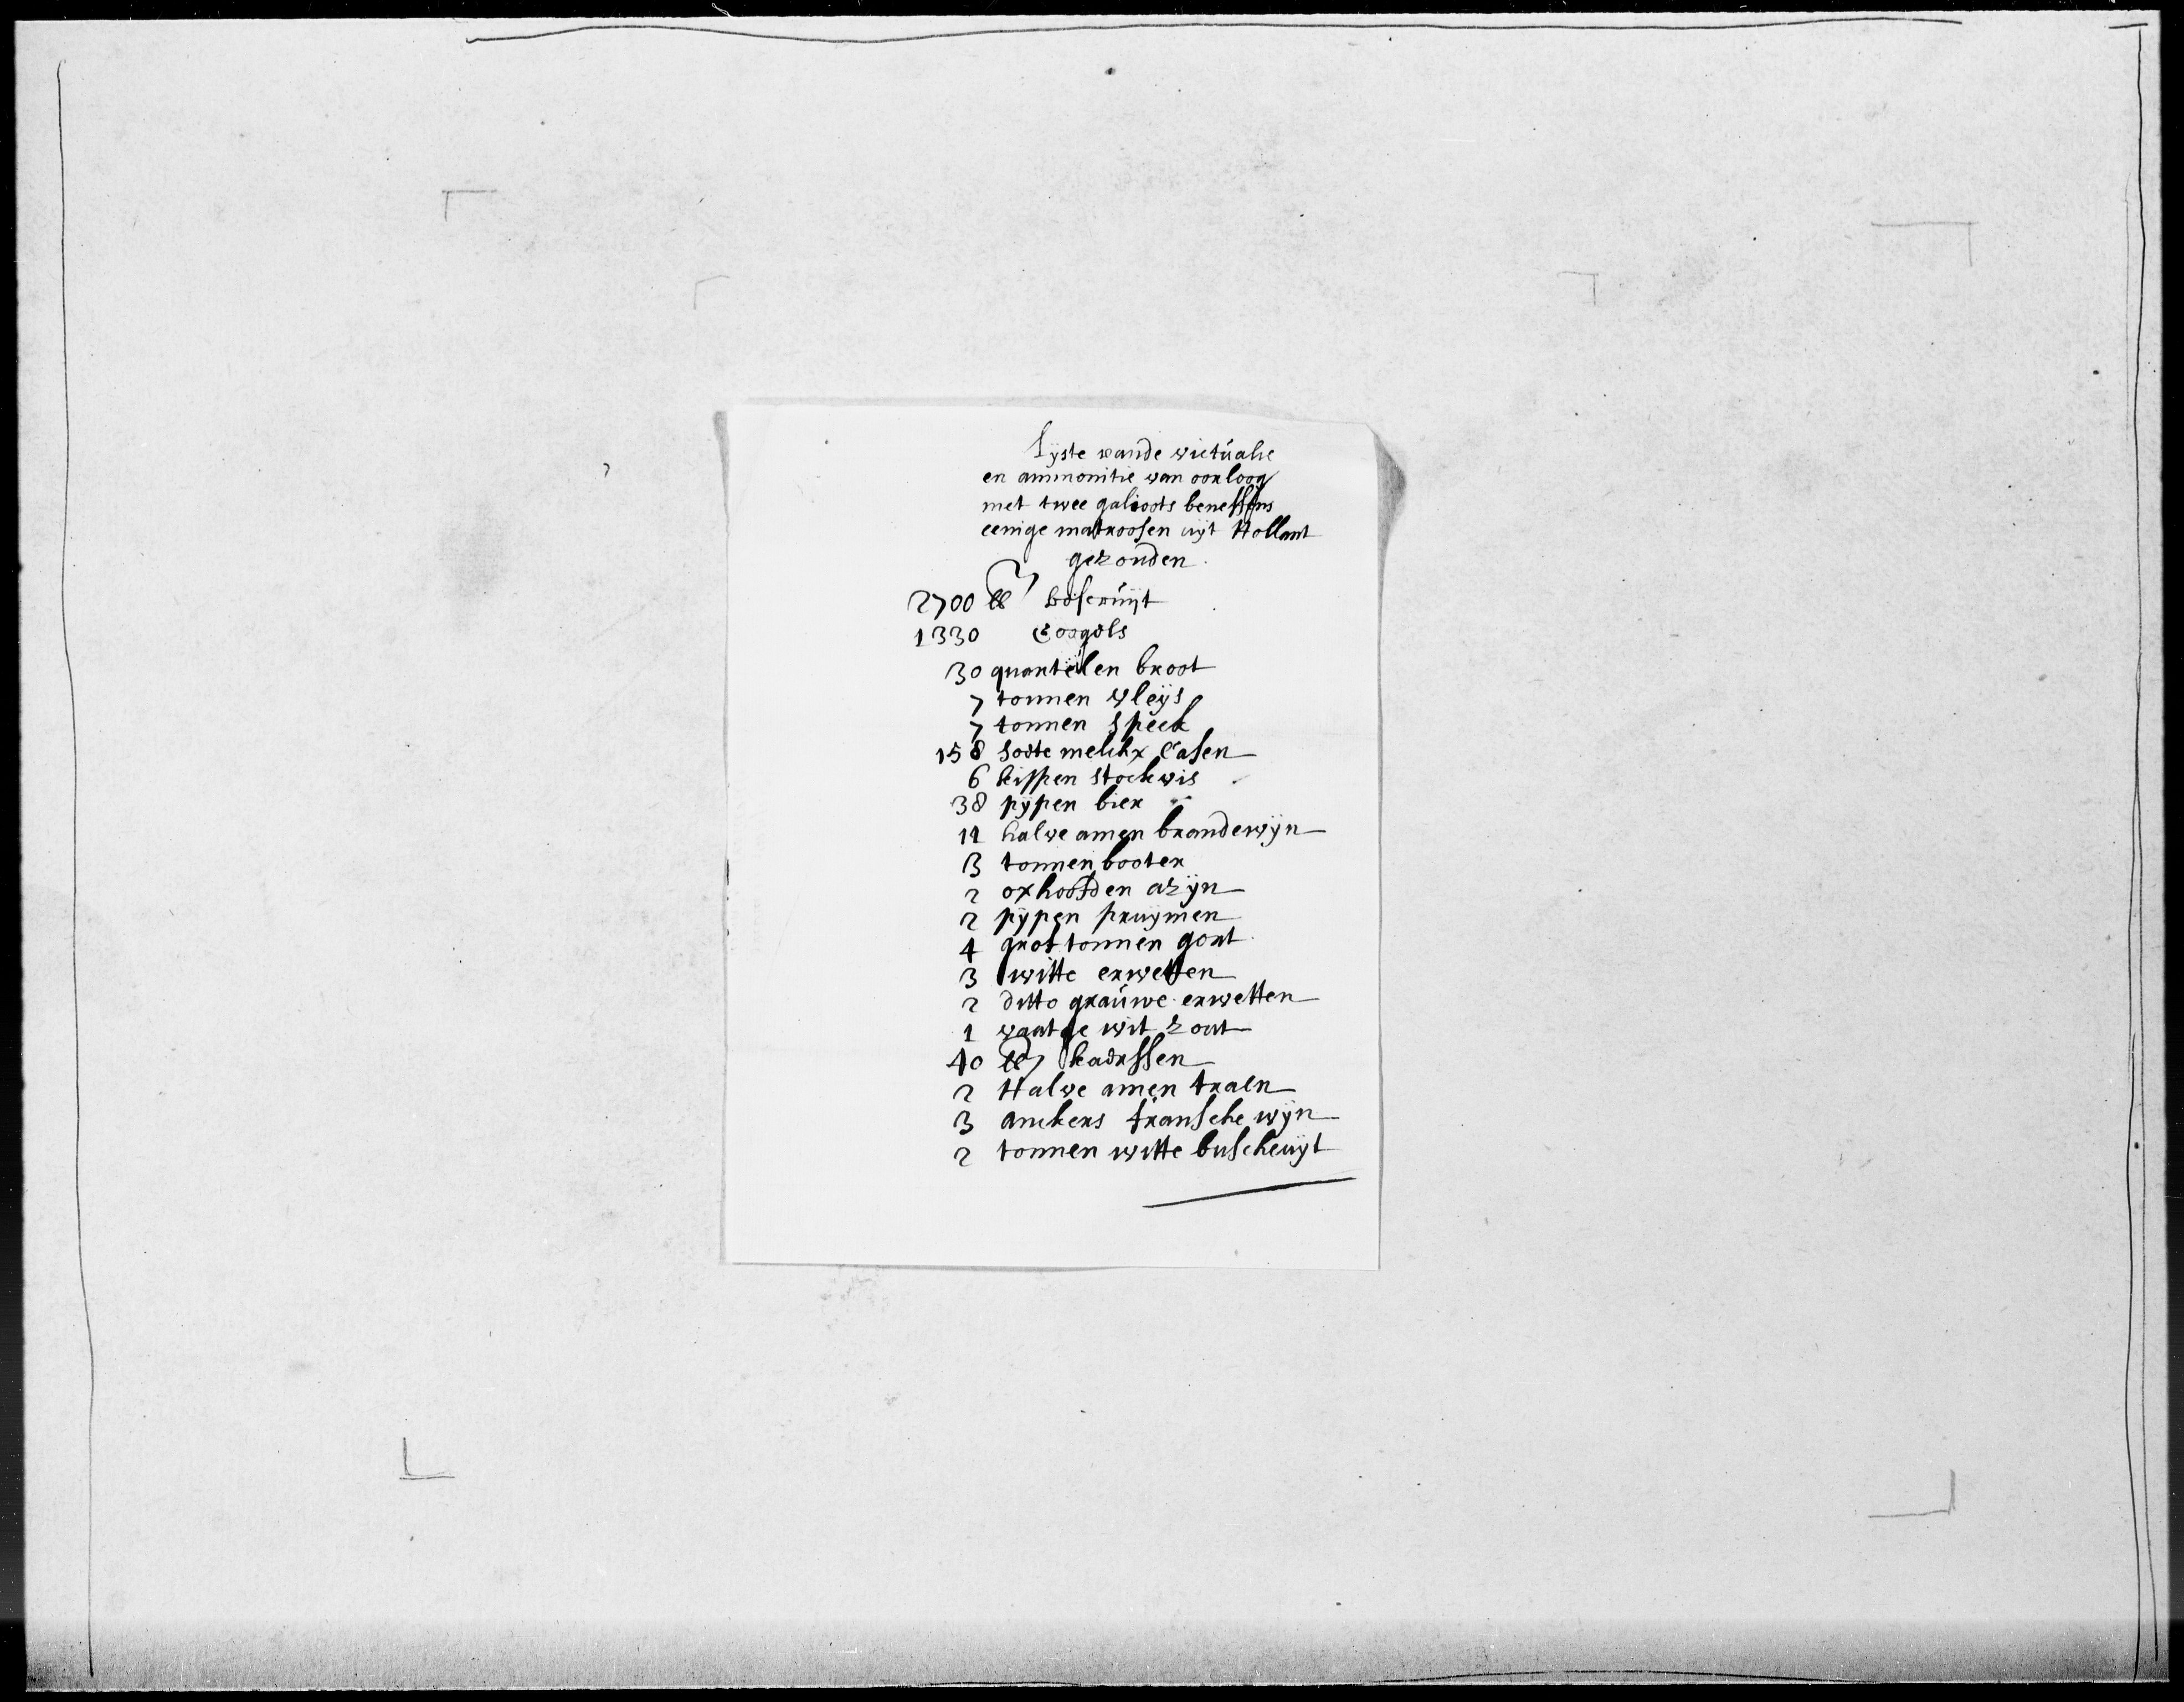 Lyste vande victualie
en ammonitie van oorloog
met twee galioots beneffens
eenige matroosen uijt Hollant
gezonden.
2700 lb boscruijt
1330 coogols
30 quarteelen broot
7 tonnen vleijs
7 tonnen speck
158 soete melckx casen
6 kippen stockvis
38 pijpen bier
11 halve amen brandewijn
3 tonnen booter
2 oxhoofden azijn
2 pijpen pruijmen
4 grof tonnen gort
3 witte erwetten
2 ditto grauwe erwetten
1 vaatge wit zout
40 lb kaarssen
2 Halve amen traen
3 anckers fransche wijn
2 tonnen witte buscheuijt